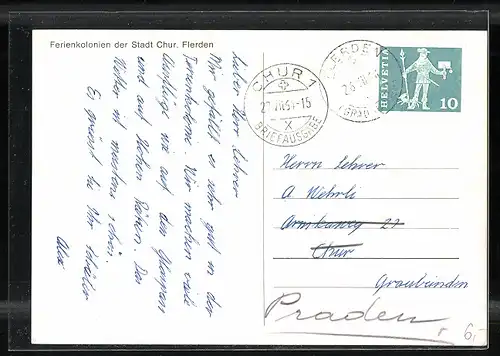 Ferienkolonien der Stadt Chur. Flerden
Lieber Herr Lehrer
Mir gefällt es sehr gut in der
Ferienkolonie. Wir machen viele
Ausflüge wie auf den Glaspass
und auf Hohen Rätien. Das
Wetter ist meistens schön.
Es grüsst Sie Ihr Schüler
Alex
CHUR 1
-15
X
BRIEFAUSGABE
FLERDEN
HELVETIA
10
Herrn Lehrer
A Wehrli
27
Chur
Graubünden
Praden
6,-